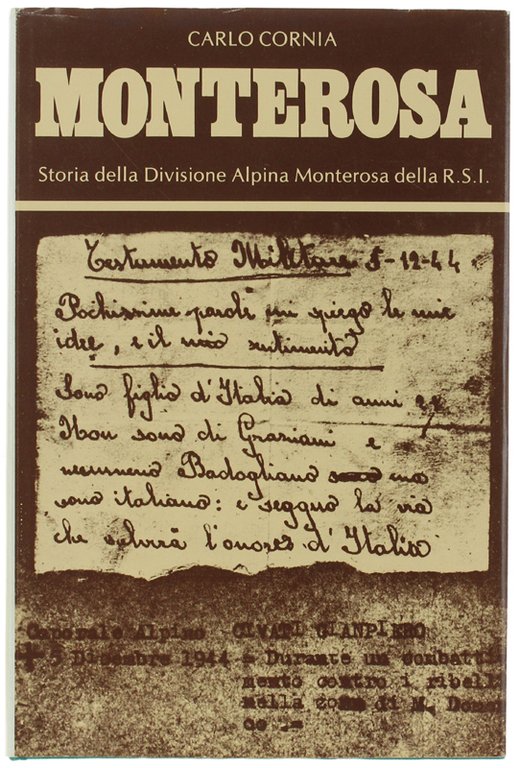 CARLO CORNIA
MONTEROSA
Storia della Divisione Alpina Monterosa della R.S.I.
Testamento Militare 5-12-44
Pochissime parole mi spiego le mie
idee, e il mio sentimento
Sono figlio d'Italia di anni 22
Non sono di Graziani e
nemmeno Badogliano ma
sono italiano: e seguo la via
che salverà l'onore d'Italia
Caporale Alpino CIVATI GIANPIERO
5 Dicembre 1944 - Durante un combatti
mento contro i ribell
nella zona di M.